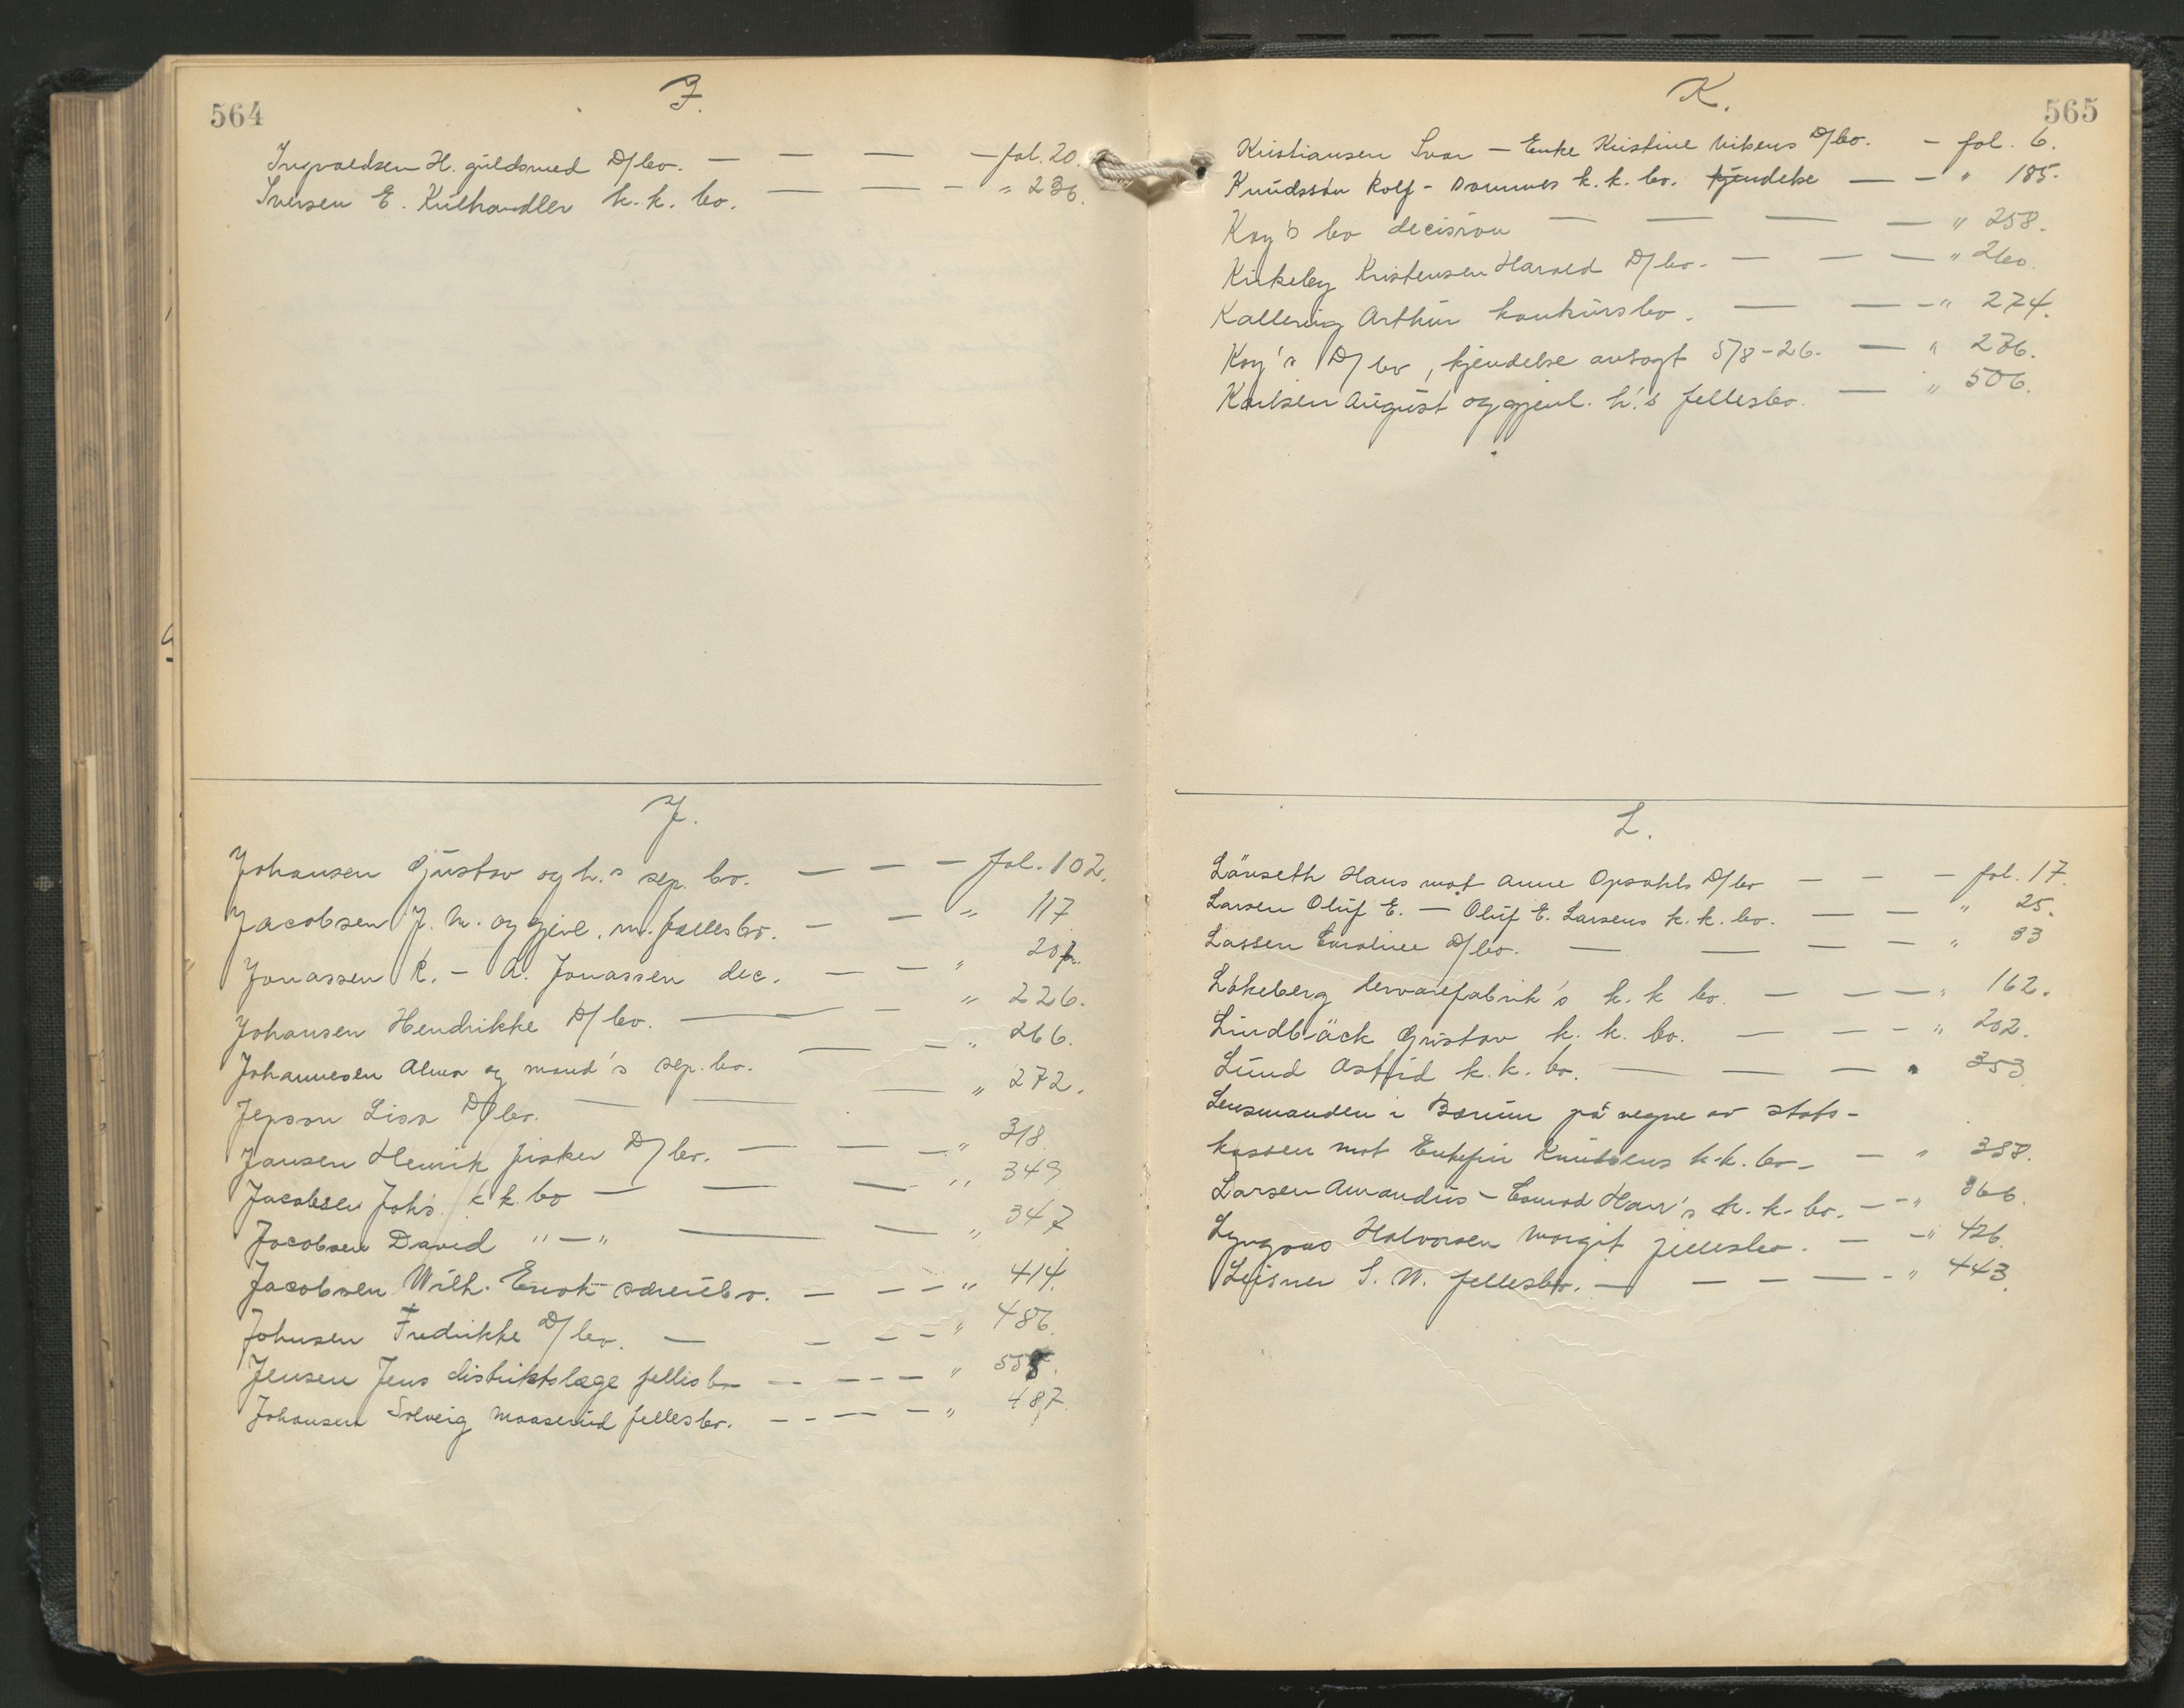 564
I.
Ingvaldsen H. guldsmed D/bo. — — — — fol. 20.
Iversen E. Kulhandler k. k. bo. — — — — " 236.
J.
Johansen Gustav og h.s sep. bo. — — — fol. 102.
Jacobsen J. M. og gjenl. m. fællesbo. — — " 117
Jonassen R. — A. Jonassen dec. — — "
Johansen Hendrikke D/bo. — — " 226.
Johannesen Alma og mand's sep. bo. — — " 266.
Jepson Lisa D/bo. — — — " 272.
Jansen Henrik fisker D/bo. — — — " 318.
Jacobsen Johs. k k. bo — — — " 349
Jacobsen David " — " — — " 347
Jacobsen Wilh. Enok særeiebo. — — — " 414.
Johnsen Fredrikke D/bo. — — — — " 486.
Jensen Jens distriktslæge fellisbo — — — — "
Johansen Solveig Maaserud fellesbo. — — — — " 487.
565
K.
Kristiansen Ivar — Enke Kristine Vibens D/bo. — fol. 6.
Knudsson Rolf — Dommes k. k. bo. kjendelse — — " 185.
Koy's bo decision — — — — " 258.
Kirkeby Kristensen Harald D/bo. — — — " 260.
Kallerig Arthur konkursbo. — — — " 274.
Koy's D/bo, kjendelse avsagt 5/8-26. — " 286.
Karlsen August og gjenl. h.'s fellesbo. — " 506.
L.
Länseth Hans mot Anne Opsahls D/bo — — — fol. 17.
Larsen Oluf E. — Oluf E. Larsens k. k. bo. — — " 25.
Lassen D/bo. — — — — " 33
Løkeberg lervarefabrik's k. k bo. — — — " 162.
Lindbäck Gustav k. k. bo. — — — " 202.
Lund Astrid k. k. bo. — — — " 353
Lensmanden i Bærum på vegne av stats-
kassen mot Enkefru Knudsens k. k. bo — — " 358.
Larsen Amandus — Conrad Han's k. k. bo. — — " 366.
Lyngaas Halvorsen Margit fellesbo. — — " 426.
Leisner S. W. fellesbo. — — — — — " 443.